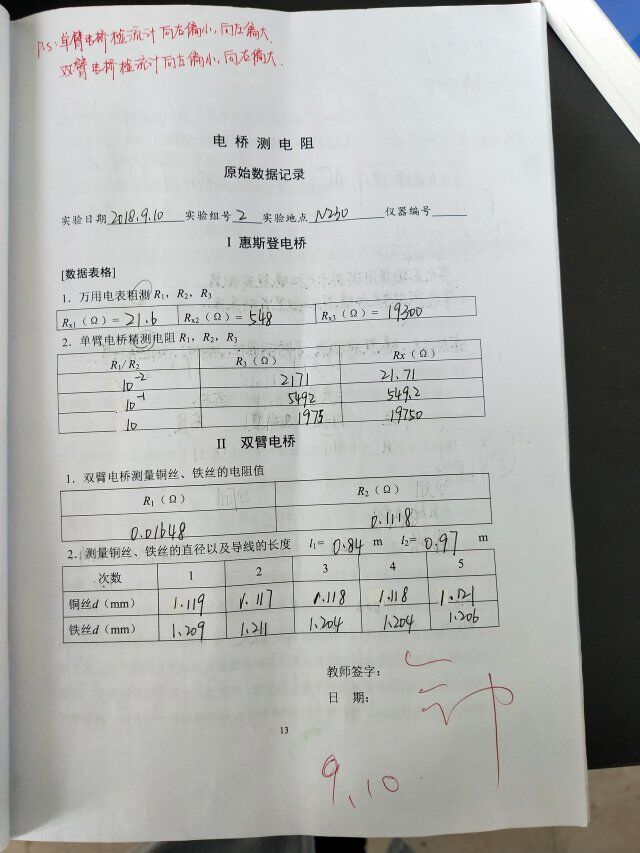 P.S:单臂电桥检流计向右偏小,向左偏大.
双臂电桥检流计向左偏小,向右偏大.
电桥测电阻
原始数据记录
实验日期 2018.9.10 实验组号 2 实验地点 N230 仪器编号
I 惠斯登电桥
[数据表格]
1. 万用电表粗测 R1, R2, R3
Rx1 (Ω) = 21.6 Rx2 (Ω) = 548 Rx3 (Ω) = 19300
2. 单臂电桥精测电阻 R1, R2, R3
R1/ R2 R3 (Ω) Rx (Ω)
10-2 2171 21.71
10-1 5492 549.2
10 1975 19750
II 双臂电桥
1. 双臂电桥测量铜丝、铁丝的电阻值
R1 (Ω) R2 (Ω)
0.01648 0.1118
2. 测量铜丝、铁丝的直径以及导线的长度 l1= 0.84 m l2= 0.97 m
次数 1 2 3 4 5
铜丝d (mm) 1.119 1.117 1.118 1.118 1.121
铁丝d (mm) 1.209 1.211 1.204 1.204 1.206
教师签字:
日 期:
13
9.10